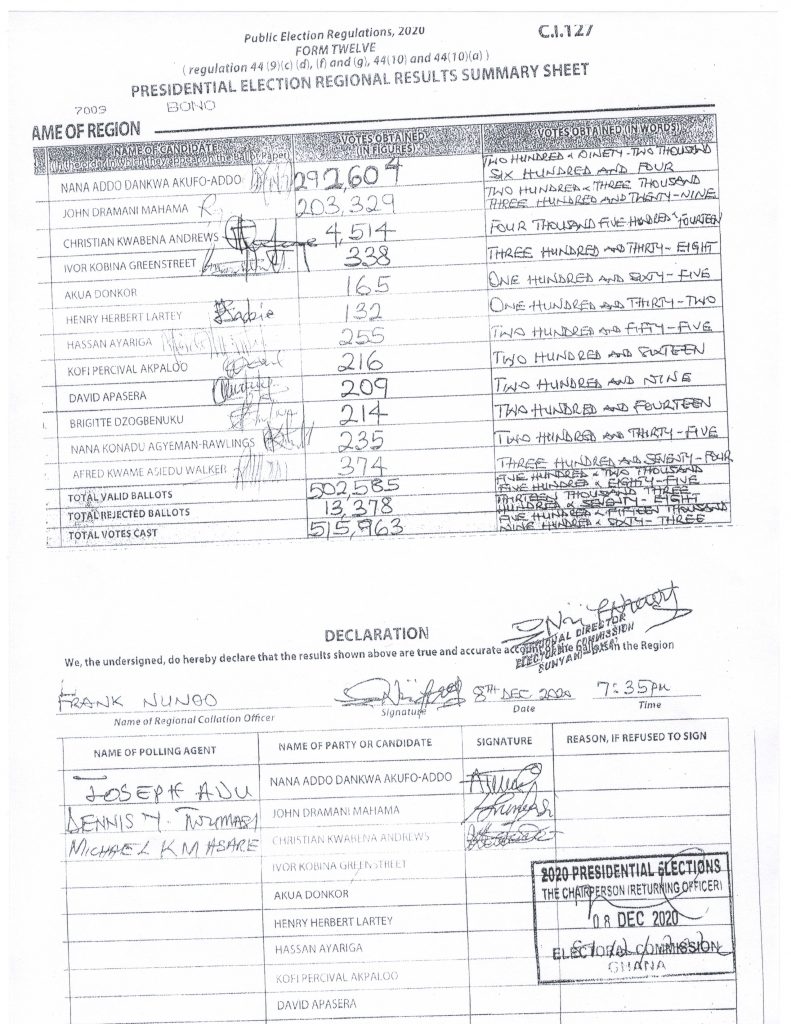 Public Election Regulations, 2020
C.I.127
FORM TWELVE
( regulation 44 (9)(c) (d), (f) and (g), 44(10) and 44(10)(a) )
PRESIDENTIAL ELECTION REGIONAL RESULTS SUMMARY SHEET
7009 BONO
AME OF REGION
NAME OF CANDIDATE VOTES OBTAINED (IN FIGURES) VOTES OBTAINED (IN WORDS)
NANA ADDO DANKWA AKUFO-ADDO 292,604 TWO HUNDRED & NINETY-TWO THOUSAND SIX HUNDRED AND FOUR
JOHN DRAMANI MAHAMA 203,329 TWO HUNDRED & THREE THOUSAND THREE HUNDRED AND TWENTY-NINE
CHRISTIAN KWABENA ANDREWS 4,514 FOUR THOUSAND FIVE HUNDRED & FOURTEEN
IVOR KOBINA GREENSTREET 338 THREE HUNDRED AND THIRTY-EIGHT
AKUA DONKOR 165 ONE HUNDRED AND SIXTY-FIVE
HENRY HERBERT LARTEY 132 ONE HUNDRED AND THIRTY-TWO
HASSAN AYARIGA 255 TWO HUNDRED AND FIFTY-FIVE
KOFI PERCIVAL AKPALOO 216 TWO HUNDRED AND SIXTEEN
DAVID APASERA 209 TWO HUNDRED AND NINE
BRIGITTE DZOGBENUKU 214 TWO HUNDRED AND FOURTEEN
NANA KONADU AGYEMAN-RAWLINGS 235 TWO HUNDRED AND THIRTY-FIVE
AFRED KWAME ASIEDU WALKER 374 THREE HUNDRED AND SEVENTY-FOUR
TOTAL VALID BALLOTS 502,585 FIVE HUNDRED & TWO THOUSAND FIVE HUNDRED & EIGHTY-FIVE
TOTAL REJECTED BALLOTS 13,378 THIRTEEN THOUSAND THREE HUNDRED & SEVENTY-EIGHT
TOTAL VOTES CAST 515,963 FIVE HUNDRED & FIFTEEN THOUSAND NINE HUNDRED & SIXTY-THREE
DECLARATION
REGIONAL DIRECTOR
ELECTORAL COMMISSION
SUNYANI
We, the undersigned, do hereby declare that the results shown above are true and accurate account of the ballots in the Region
FRANK NUNOO 8TH DEC 2020 7:35PM
Name of Regional Collation Officer Signature Date Time
NAME OF POLLING AGENT NAME OF PARTY OR CANDIDATE SIGNATURE REASON, IF REFUSED TO SIGN
JOSEPH ADU NANA ADDO DANKWA AKUFO-ADDO
DENNIS Y. TWUMASI JOHN DRAMANI MAHAMA
MICHAEL K M ASARE CHRISTIAN KWABENA ANDREWS
IVOR KOBINA GREENSTREET
AKUA DONKOR
HENRY HERBERT LARTEY
HASSAN AYARIGA
KOFI PERCIVAL AKPALOO
DAVID APASERA
2020 PRESIDENTIAL ELECTIONS
THE CHAIRPERSON (RETURNING OFFICER)
08 DEC 2020
ELECTORAL COMMISSION
GHANA